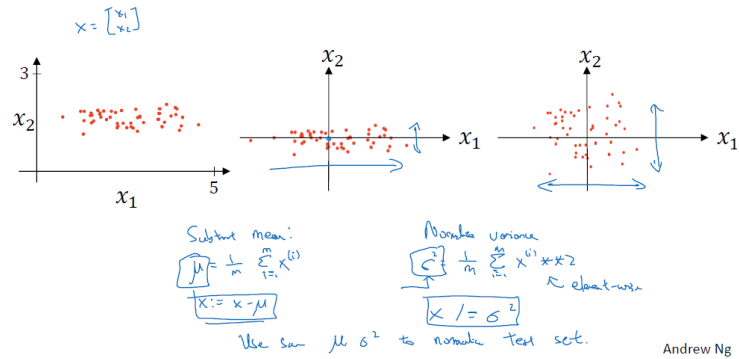 x = [x₁ x₂]
3
x₂
x₁
5
x₂
x₁
x₂
x₁
Subtract mean:
μ = 1/m Σ_{i=1}^{m} x^{(i)}
x := x - μ
Normalize variance
σ² = 1/m Σ_{i=1}^{m} x^{(i)} ** 2
↖ element-wise
x /= σ²
Use same μ σ² to normalize test set.
Andrew Ng